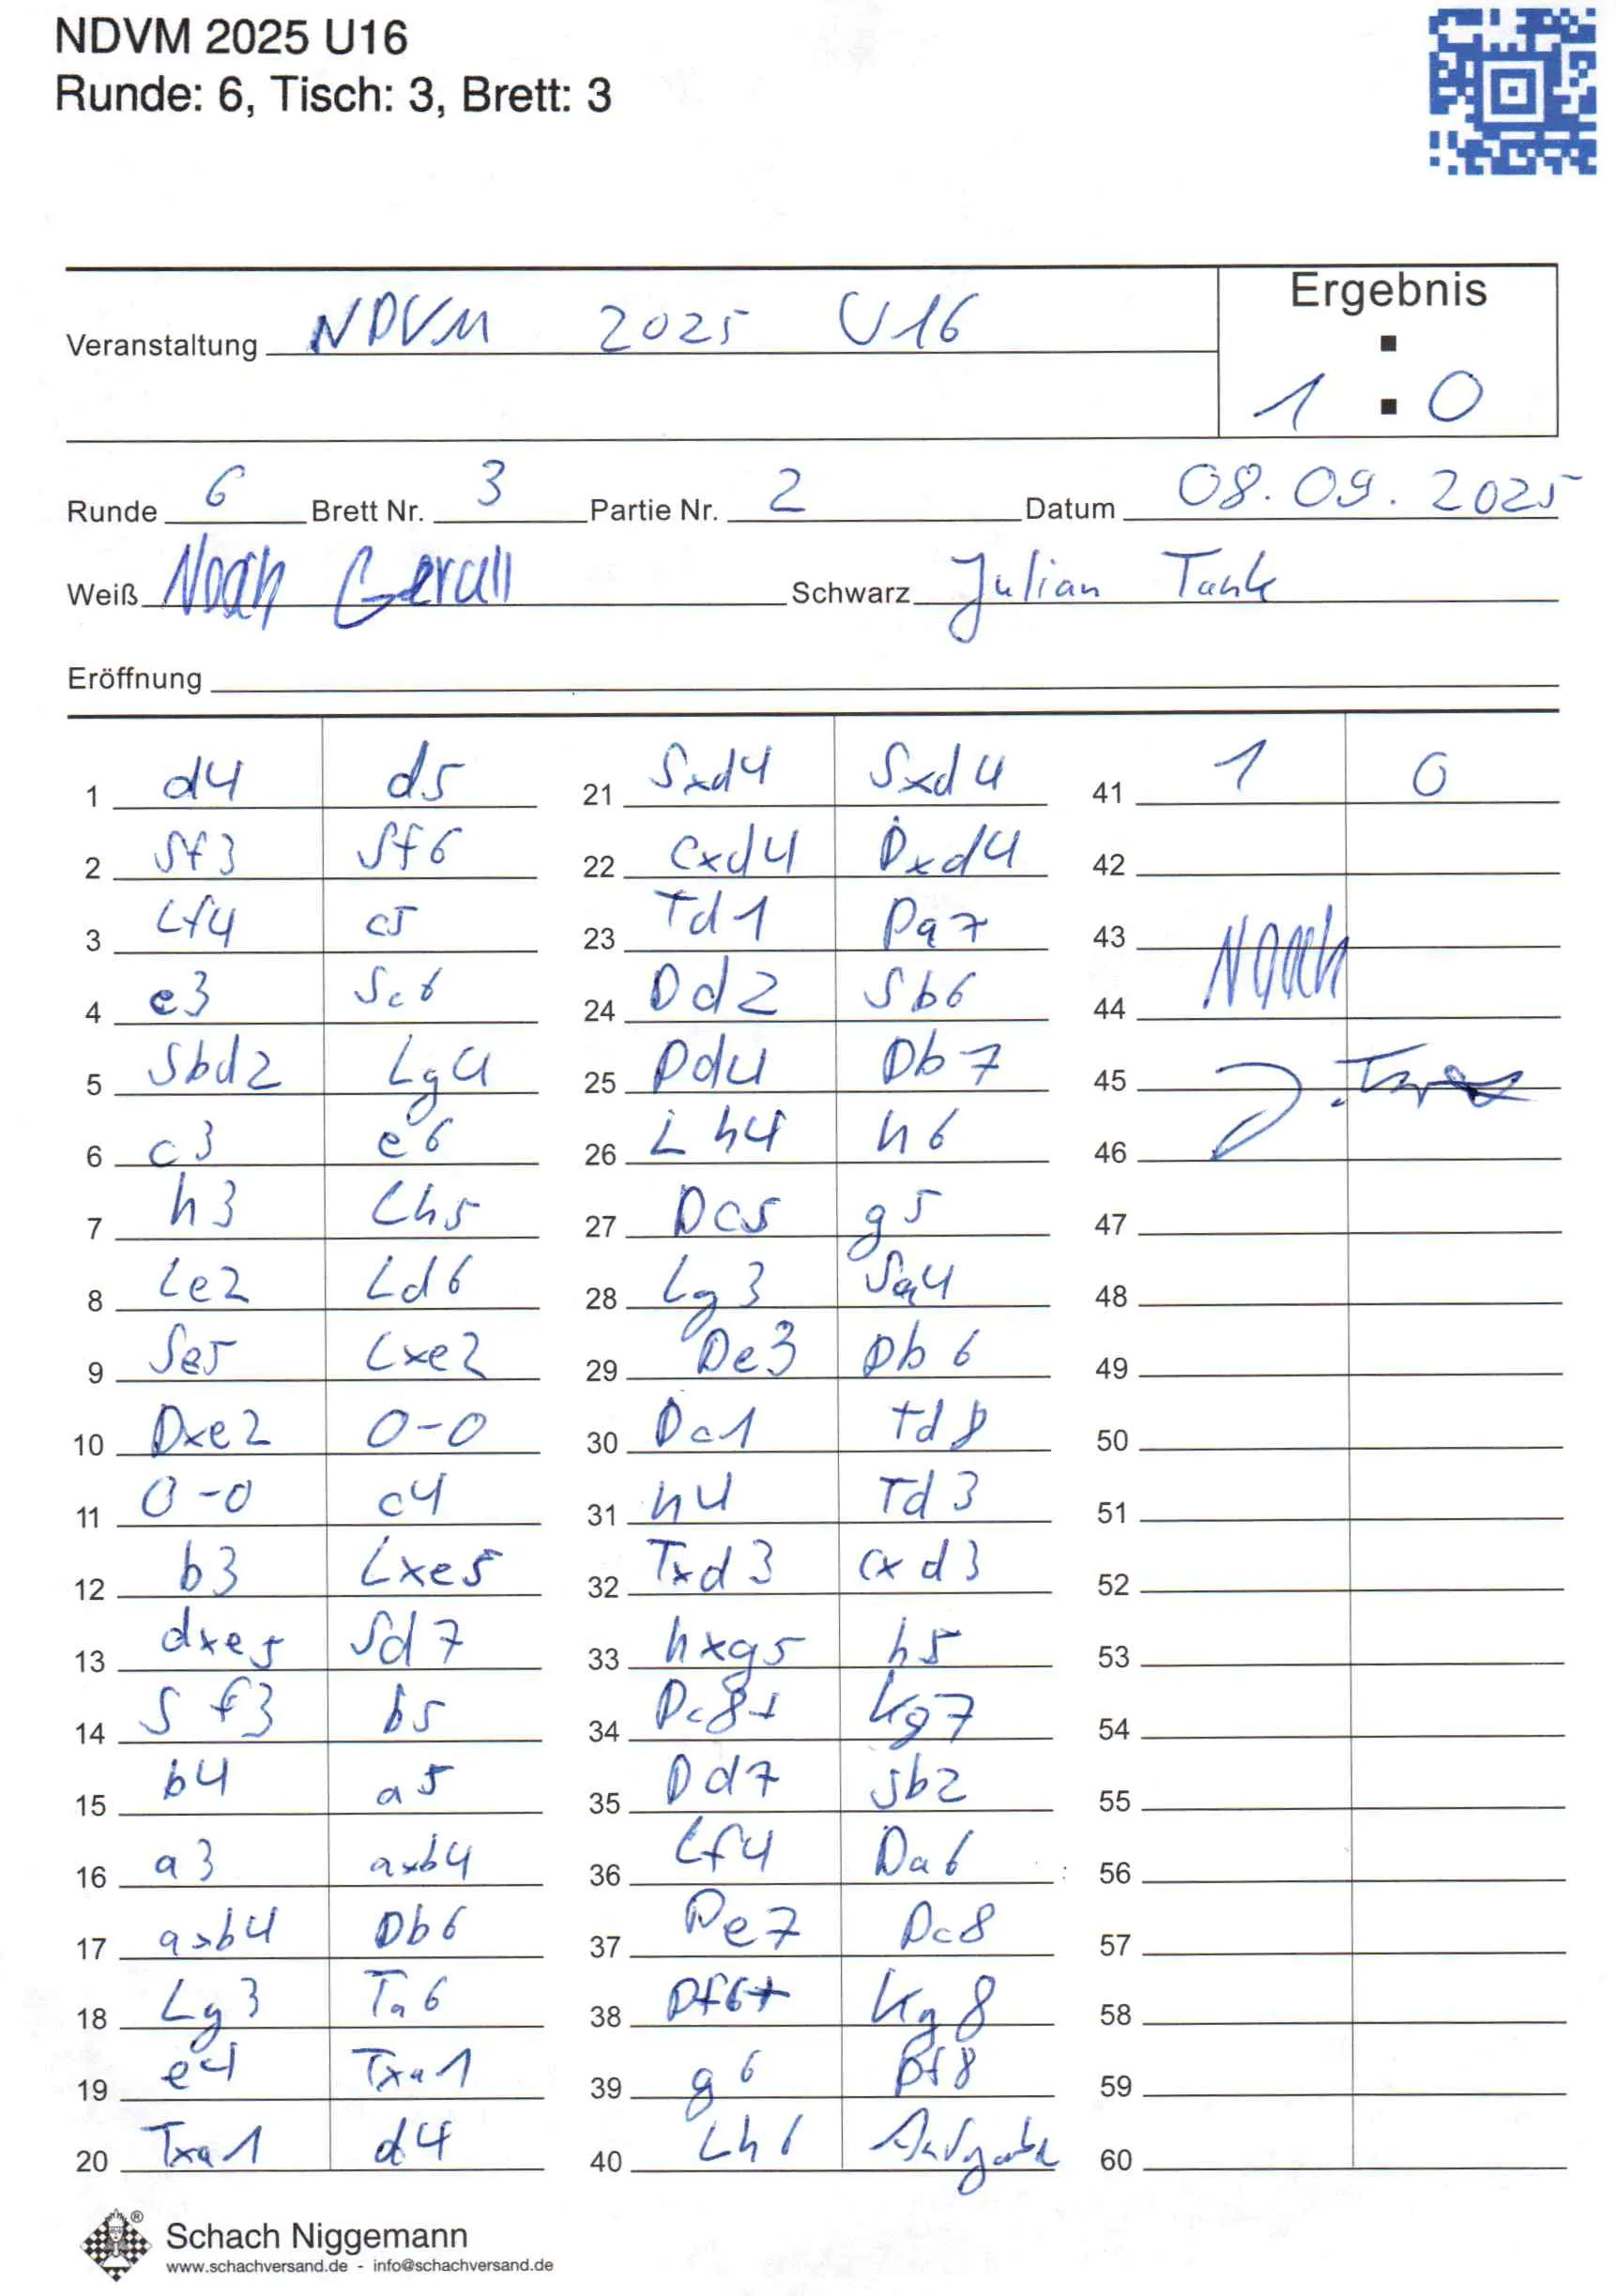 NDVM 2025 U16
Runde: 6, Tisch: 3, Brett: 3
Ergebnis
Veranstaltung NDVM 2025 U16
1 : 0
Runde 6 Brett Nr. 3 Partie Nr. 2 Datum 08.09.2025
Weiß Noah Schwarz Julian Tank
Eröffnung
1 d4 d5 21 Sxd4 Sxd4 41 1 0
2 Sf3 Sf6 22 cxd4 Dxd4 42
3 Lf4 c5 23 Td1 Da7 43 Noah
4 e3 Sc6 24 Dd2 Sb6 44
5 Sbd2 Lg4 25 Dd4 Db7 45 J. Tank
6 c3 e6 26 Lh4 h6 46
7 h3 Lh5 27 Dc5 g5 47
8 Le2 Ld6 28 Lg3 Sa4 48
9 Se5 Lxe2 29 De3 Db6 49
10 Dxe2 0-0 30 Dc1 Td8 50
11 0-0 c4 31 h4 Td3 51
12 b3 Lxe5 32 Txd3 cxd3 52
13 dxe5 Sd7 33 hxg5 h5 53
14 Sf3 b5 34 Dc8+ Kg7 54
15 b4 a5 35 Dd7 Sb2 55
16 a3 axb4 36 Lf4 Da6 56
17 axb4 Db6 37 De7 Dc8 57
18 Lg3 Ta6 38 Df6+ Kg8 58
19 e4 Txa1 39 g6 Df8 59
20 Txa1 d4 40 Lh6 Aufgabe 60
Schach Niggemann
www.schachversand.de - info@schachversand.de